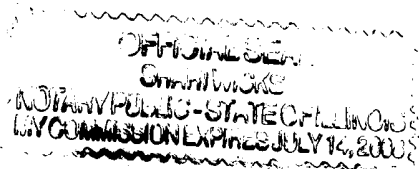 OFFICIAL SEAL
NOTARY PUBLIC - STATE OF ILLINOIS
MY COMMISSION EXPIRES JULY 14, 2000